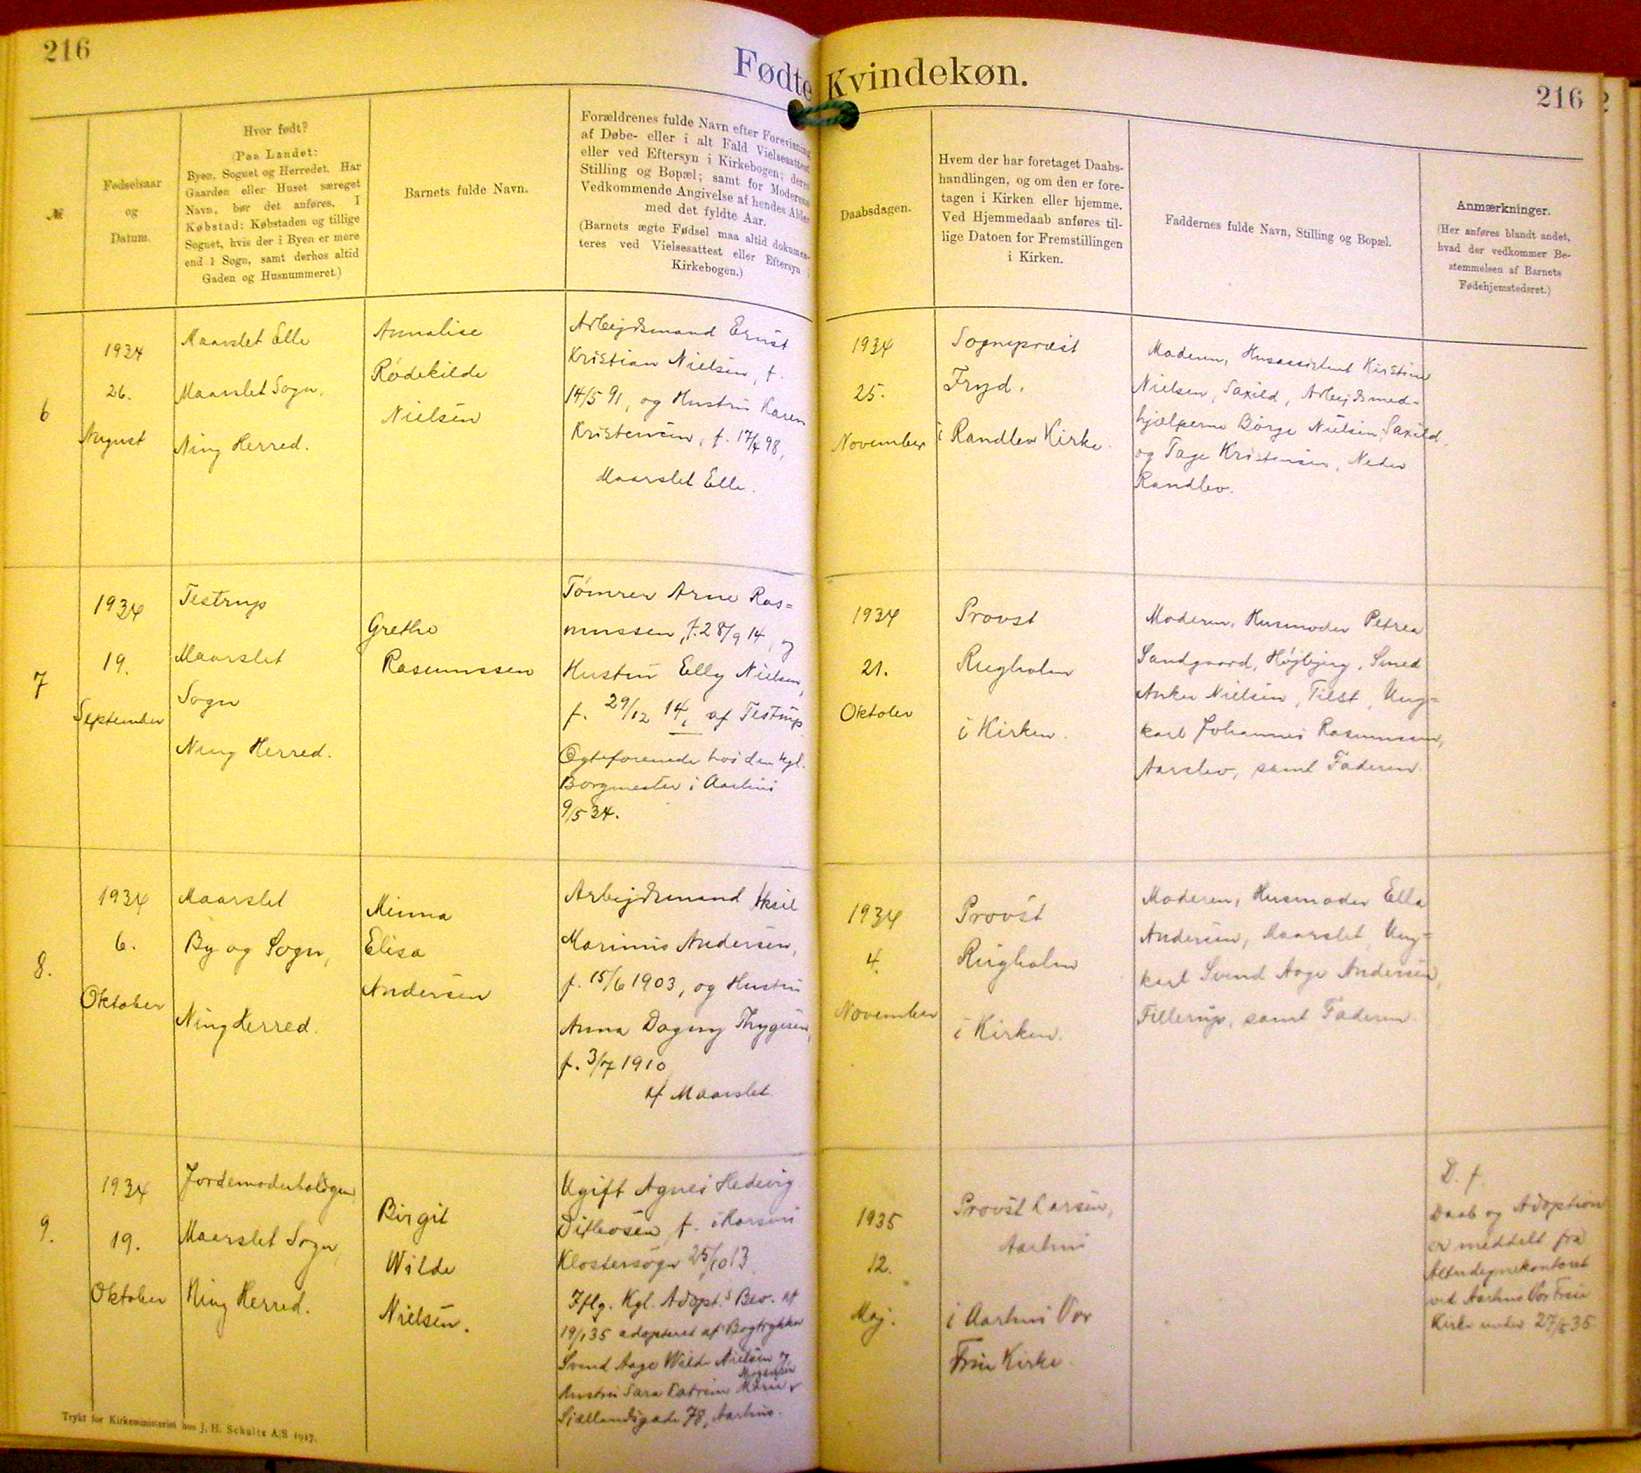 216
Fødte Kvindekøn.
216
№
Fødselsaar
og
Datum.
Hvor født?
(Paa Landet:
Byen, Sognet og Herredet. Har
Gaarden eller Huset særeget
Navn, bør det anføres. I
Købstad: Købstaden og tillige
Sognet, hvis der i Byen er mere
end 1 Sogn, samt derhos altid
Gaden og Husnummeret.)
Barnets fulde Navn.
Forældrenes fulde Navn efter Forevisning
af Døbe- eller i alt Fald Vielsesattest
eller ved Eftersyn i Kirkebogen; deres
Stilling og Bopæl; samt for Moderens
Vedkommende Angivelse af hendes Alder
med det fyldte Aar.
(Barnets ægte Fødsel maa altid dokumen-
teres ved Vielsesattest eller Eftersyn i
Kirkebogen.)
Daabsdagen.
Hvem der har foretaget Daabs-
handlingen, og om den er fore-
tagen i Kirken eller hjemme.
Ved Hjemmedaab anføres til-
lige Datoen for Fremstillingen
i Kirken.
Faddernes fulde Navn, Stilling og Bopæl.
Anmærkninger.
(Her anføres blandt andet,
hvad der vedkommer Be-
stemmelsen af Barnets
Fødehjemstedsret.)
6
1934
26.
August
Maarslet Elle
Maarslet Sogn,
Ning Herred.
Annalise
Rødekilde
Nielsen
Arbejdsmand Ernst
Kristian Nielsen, f.
14/5 91, og Hustru Karen
Kristensen, f. 17/4 98,
Maarslet Elle.
1934
25.
November
Sognepræst
Fryd,
i Randlev Kirke.
Moderen, Husassistent Kirstine
Nielsen, Saxild, Arbejdsmed-
hjælperne Börge Nielsen, Saxild,
og Tage Kristensen, Neder
Randlev.
7
1934
19.
September
Testrup
Maarslet
Sogn
Ning Herred.
Grethe
Rasmussen
Tömrer Arne Ras-
mussen, f. 28/9 14, og
Hustru Elly Nielsen,
f. 29/12 14, af Testrup
Ægteforenede hos den kgl.
Borgmester i Aarhus
9/5 34.
1934
21.
Oktober
Provst
Rugholm
i Kirken.
Moderen, Husmoder Petrea
Sandgaard, Højbjerg, Smed
Anker Nielsen, Tilst, Ung-
karl Johannes Rasmussen,
Aarslev, samt Faderen.
8.
1934
6.
Oktober
Maarslet
By og Sogn,
Ning Herred.
Minna
Elisa
Andersen
Arbejdsmand Aksel
Marinus Andersen,
f. 15/6 1903, og Hustru
Anna Dagny Thygesen,
f. 3/7 1910
af Maarslet.
1934
4.
November
Provst
Rugholm
i Kirken.
Moderen, Husmoder Ella
Andersen, Maarslet, Ung-
karl Svend Aage Andersen,
Fillerup, samt Faderen.
9.
1934
19.
Oktober
Jordemoderboligen
Maarslet Sogn,
Ning Herred.
Birgit
Wilde
Nielsen.
Ugift Agnes Hedevig
Ditlevsen, f. i Horsens
Klostersogn 25/10 13.
Iflg. Kgl. Adopt.s Bev. af
19/1 35 adopteret af Bogtrykker
Svend Aage Wilde Nielsen og
Hustru Sara Katrine Marie
Sjællandsgade 78, Aarhus.
1935
12.
Maj.
Provst Larsen,
Aarhus
i Aarhus Vor
Frue Kirke.
D. f.
Daab og Adoption
er meddelt fra
ved Aarhus Vor Frue
Kirke under 27/5 35
Trykt for Kirkeministeriet hos J. H. Schultz A/S 1927.